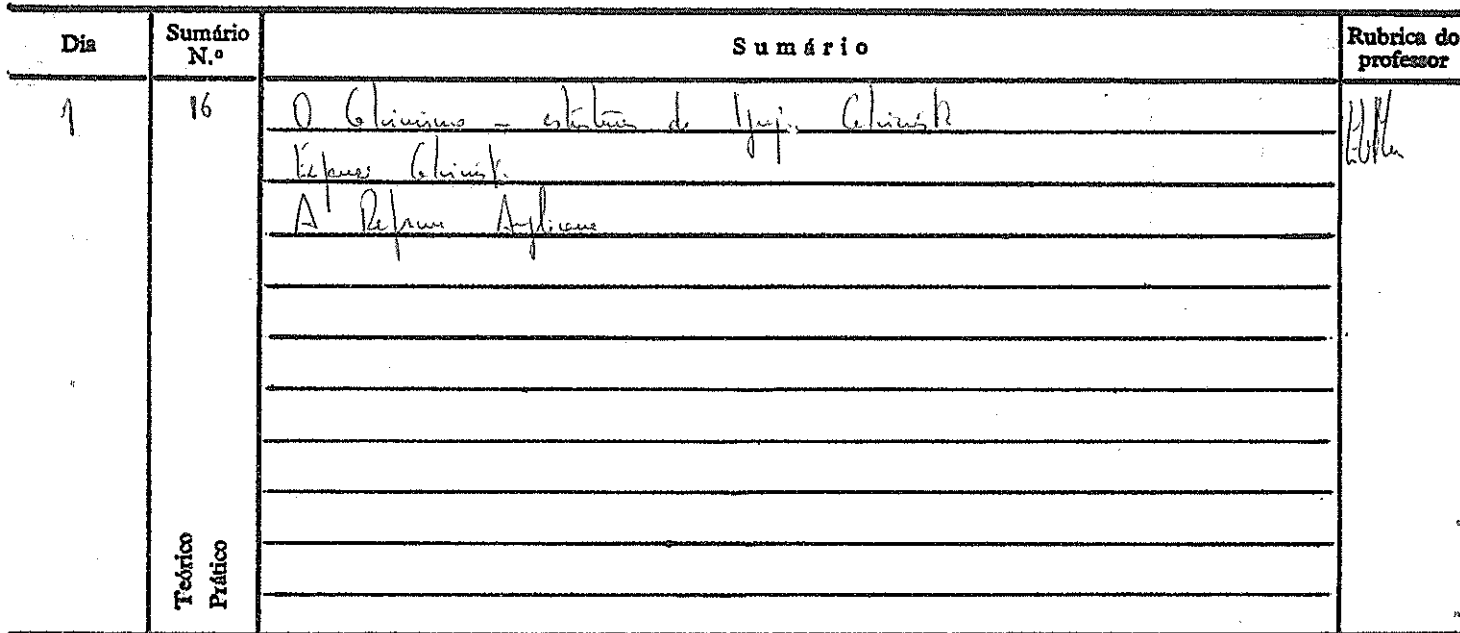 Dia
Sumário N.º
Sumário
Rubrica do professor
1
16
O Calvinismo - estrutura da Igreja Calvinista
Expansão Calvinista
A Reforma Anglicana
Teórico
Prático